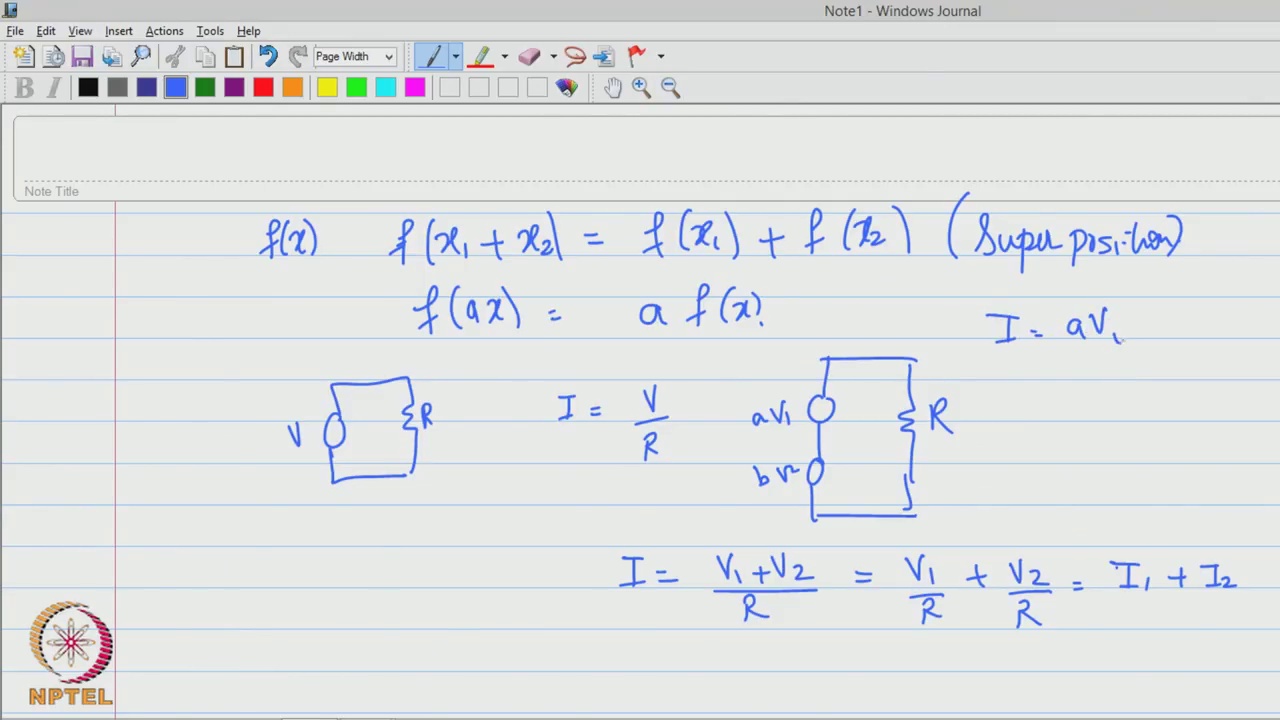 Note1 - Windows Journal
File Edit View Insert Actions Tools Help
Page Width
B I
Note Title
f(x) f(x₁ + x₂) = f(x₁) + f(x₂) (Superposition)
f(ax) = a f(x)
I = aV₁
V R I = V/R aV₁ R
bV2
I = (V₁ + V₂)/R = V₁/R + V₂/R = I₁ + I₂
NPTEL